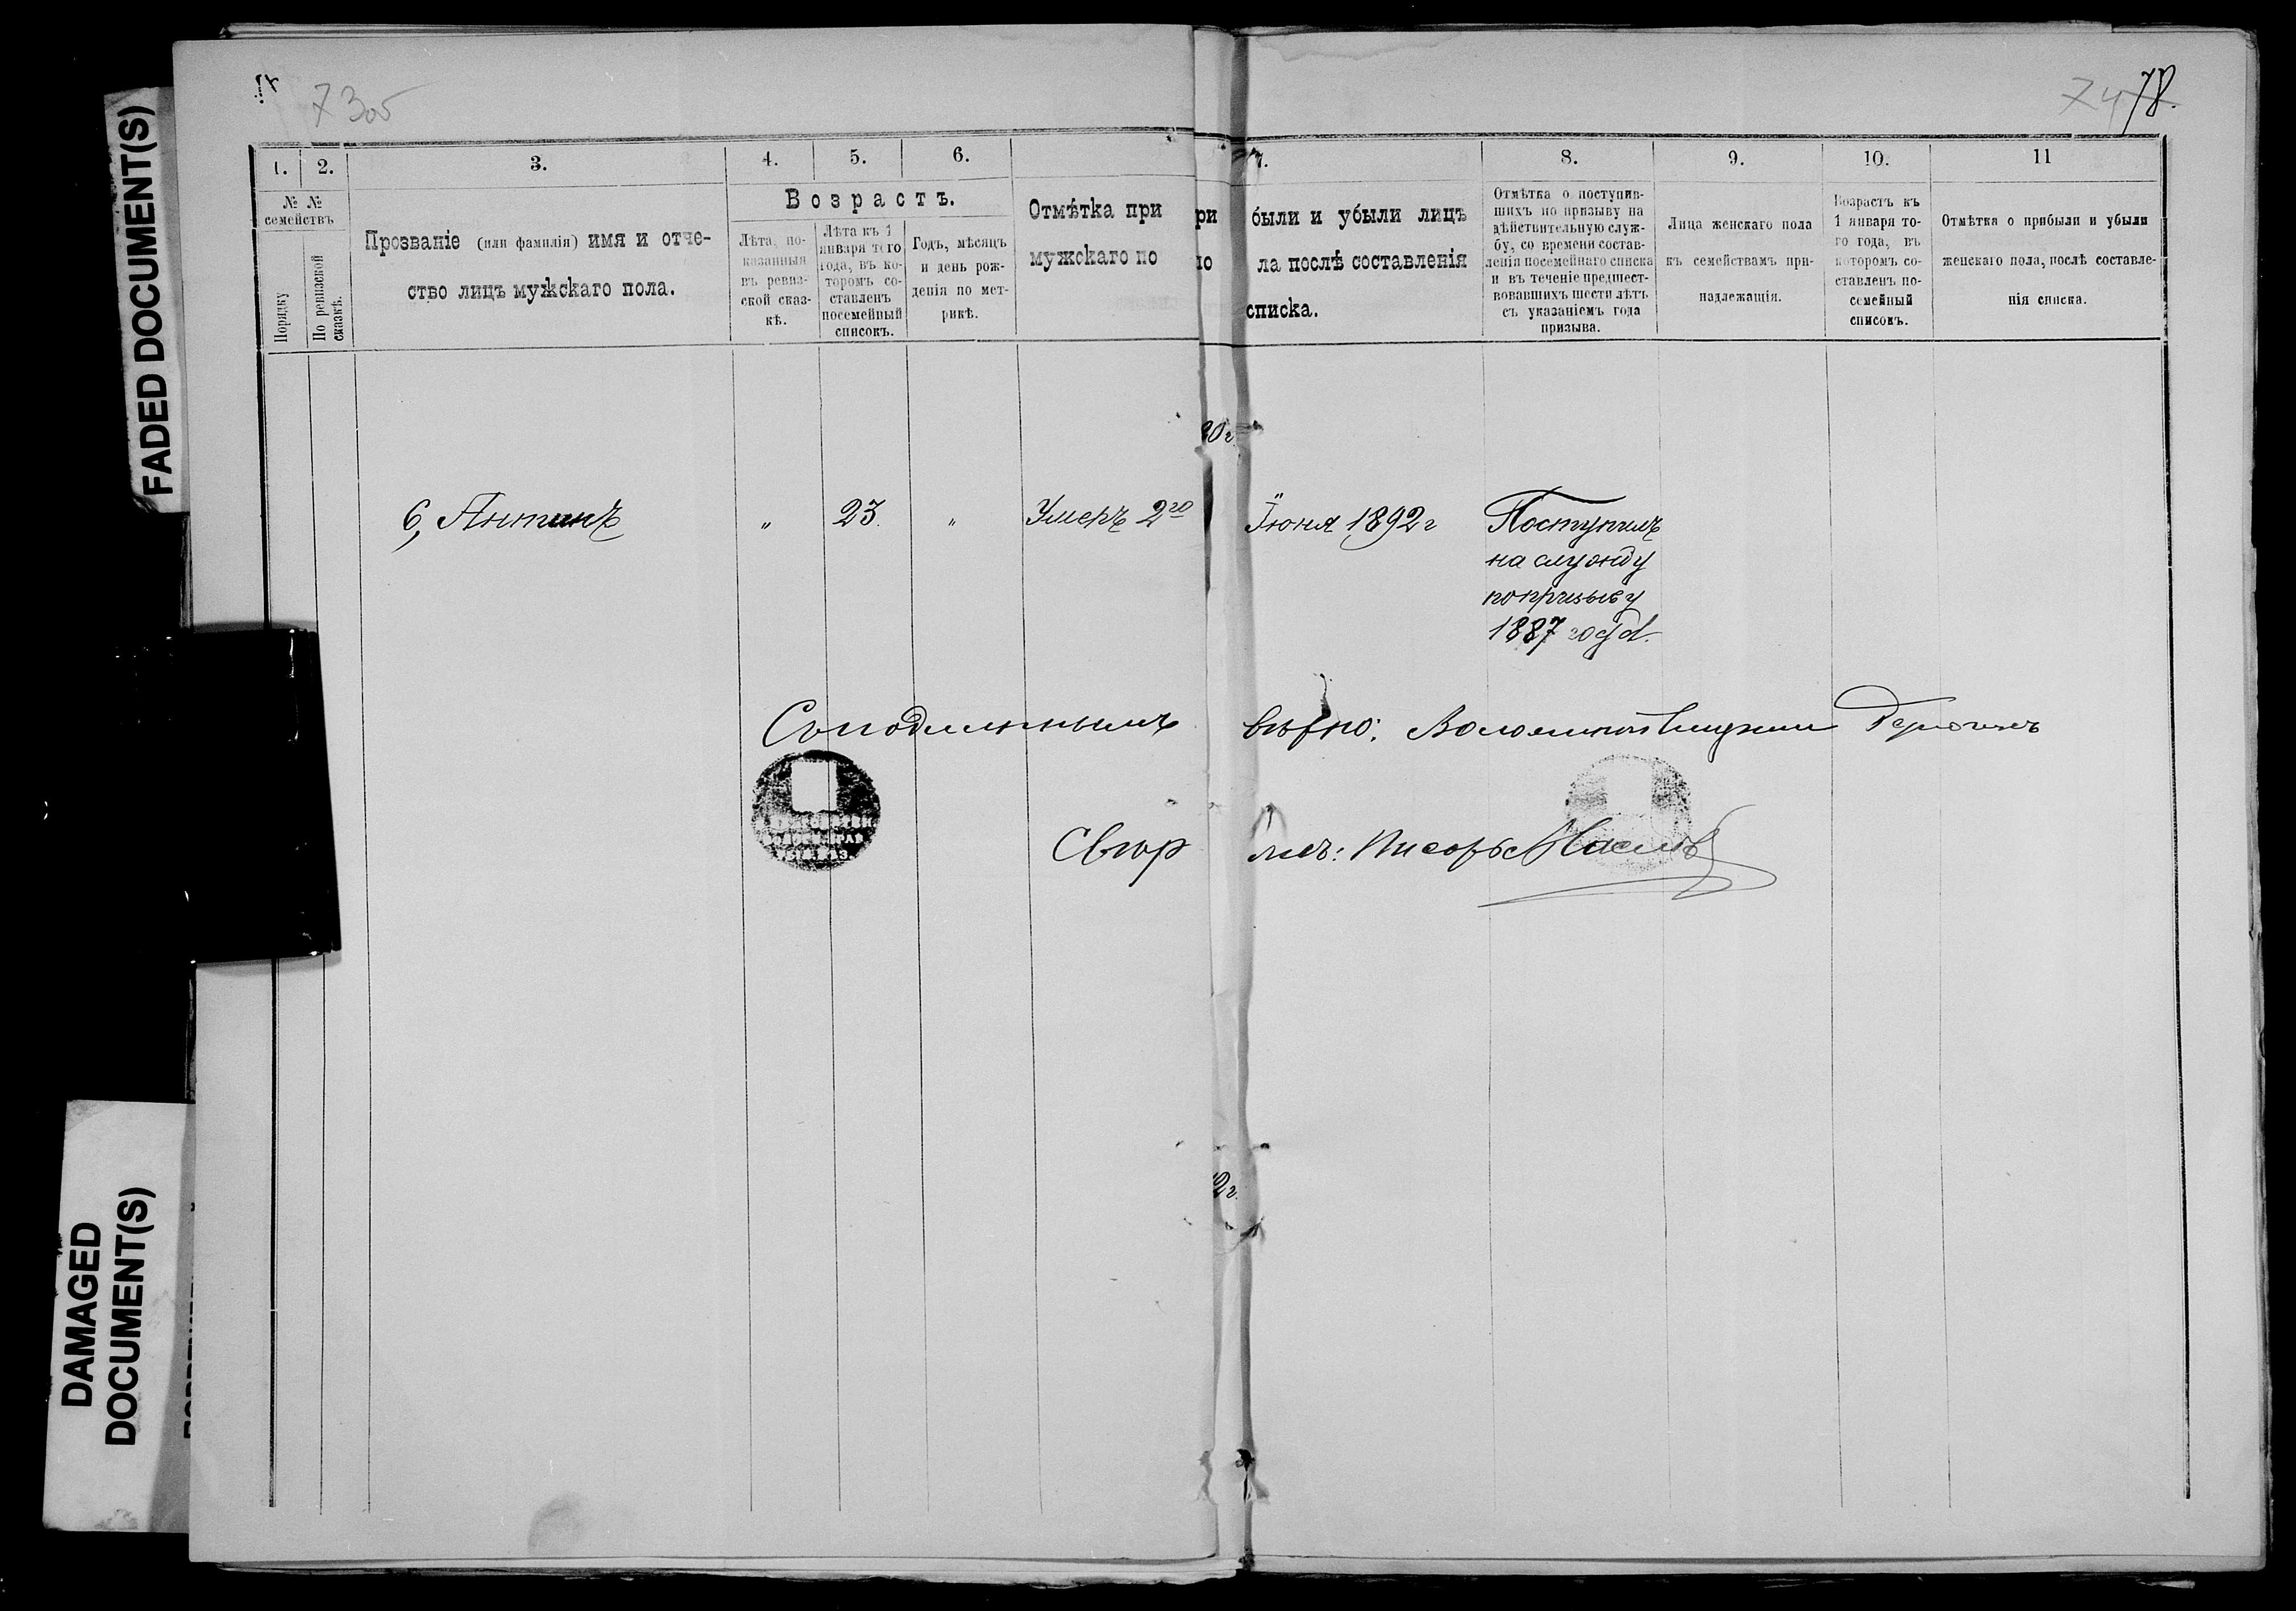 FADED DOCUMENT(S)
DAMAGED
DOCUMENT(S)
73об
74
78.
1.
2.
3.
4.
5.
6.
7.
8.
9.
10.
11
№ №
семействъ
Порядку
По ревизской
сказкѣ.
Прозваніе (или фамилія) имя и отче-
ство лицъ мужскаго пола.
Возрастъ.
Лѣта, по-
казанныя
въ ревиз-
ской сказ-
кѣ.
Лѣта къ 1
января того
года, въ ко-
торомъ со-
ставленъ
посемейный
списокъ.
Годъ, мѣсяцъ
и день рож-
денія по мет-
рикѣ.
Отмѣтка при
мужскаго по
были и убыли лицъ
ла послѣ составленія
списка.
Отмѣтка о поступив-
шихъ по призыву на
дѣйствительную служ-
бу, со времени состав-
ленія посемейнаго списка
и въ теченіе предшест-
вовавшихъ шести лѣтъ
съ указаніемъ года
призыва.
Лица женскаго пола
къ семействамъ при-
надлежащія.
Возрастъ къ
1 января то-
го года, въ
которомъ со-
ставленъ по-
семейный
списокъ.
Отмѣтка о прибыли и убыли
женскаго пола, послѣ составле-
нія списка.
6, Антипъ " 23. " Умеръ 2го Іюня 1892 г
Поступилъ
на службу
по призыву
1887 года.
Съ подлиннымъ вѣрно: Волостной
Свѣрялъ: Писарь